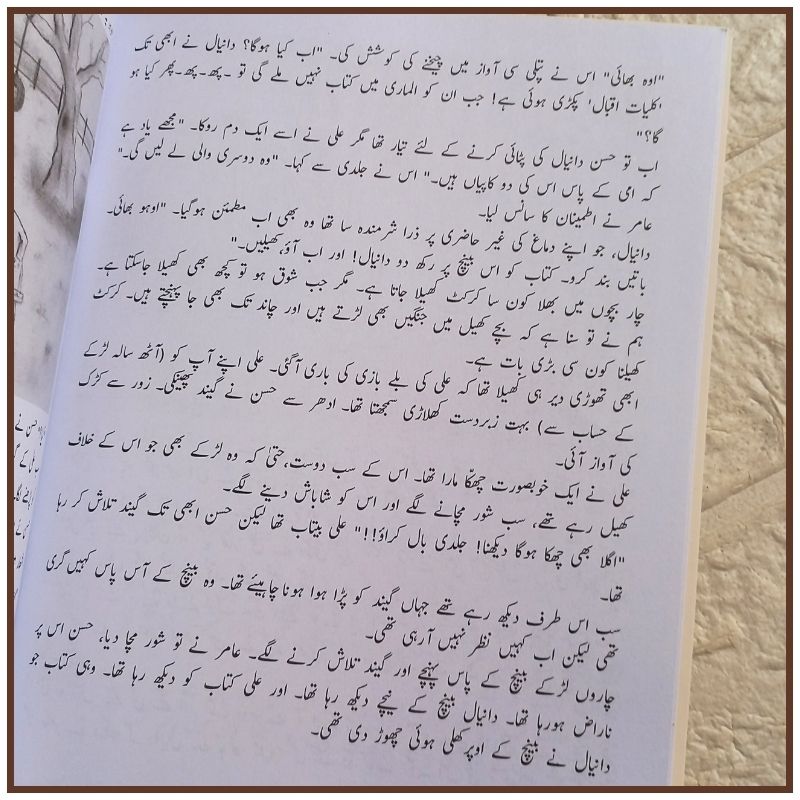 "اوہ بھائی" اس نے پتلی سی آواز میں چیخنے کی کوشش کی۔ "اب کیا ہوگا؟ دانیال نے ابھی تک
'کلیات اقبال' پکڑی ہوئی ہے! جب ان کو الماری میں کتاب نہیں ملے گی تو ۔پھ۔پھ۔پھر کیا ہو
گا؟"
اب تو حسن دانیال کی پٹائی کرنے کے لئے تیار تھا مگر علی نے اسے ایک دم روکا۔ "مجھے یاد ہے
کہ امی کے پاس اس کی دو کاپیاں ہیں۔" اس نے جلدی سے کہا۔ "وہ دوسری والی لے لیں گی۔"
عامر نے اطمینان کا سانس لیا۔
دانیال، جو اپنے دماغ کی غیر حاضری پر ذرا شرمندہ سا تھا وہ بھی اب مطمئن ہوگیا۔ "اوہو بھائی۔
باتیں بند کرو۔ کتاب کو اس بینچ پر رکھ دو دانیال! اور اب آؤ،کھیلیں۔"
چار بچوں میں بھلا کون سا کرکٹ کھیلا جاتا ہے۔ مگر جب شوق ہو تو کچھ بھی کھیلا جاسکتا ہے۔
ہم نے تو سنا ہے کہ بچے کھیل میں جنگیں بھی لڑتے ہیں اور چاند تک بھی جا پہنچتے ہیں۔ کرکٹ
کھیلنا کون سی بڑی بات ہے۔
ابھی تھوڑی دیر ہی کھیلا تھا کہ علی کی بلے بازی کی باری آگئی۔ علی اپنے آپ کو (آٹھ سالہ لڑکے
کے حساب سے) بہت زبردست کھلاڑی سمجھتا تھا۔ ادھر سے حسن نے گیند پھینکی۔ زور سے کڑک
کی آواز آئی۔
علی نے ایک خوبصورت چھکّا مارا تھا۔ اس کے سب دوست،حتیٰ کہ وہ لڑکے بھی جو اس کے خلاف
کھیل رہے تھے، سب شور مچانے لگے اور اس کو شاباش دینے لگے۔
"اگلا بھی چھکا ہوگا دیکھنا! جلدی بال کراؤ!!" علی بیتاب تھا لیکن حسن ابھی تک گیند تلاش کر رہا
تھا۔
سب اس طرف دیکھ رہے تھے جہاں گیند کو پڑا ہوا ہونا چاہیئے تھا۔ وہ بینچ کے آس پاس کہیں گری
تھی لیکن اب کہیں نظر نہیں آرہی تھی۔
چاروں لڑکے بینچ کے پاس پہنچے اور گیند تلاش کرنے لگے۔ عامر نے تو شور مچا دیا، حسن اس پر
ناراض ہورہا تھا۔ دانیال بینچ کے نیچے دیکھ رہا تھا۔ اور علی کتاب کو دیکھ رہا تھا۔ وہی کتاب جو
دانیال نے بینچ کے اوپر کھلی ہوئی چھوڑ دی تھی۔